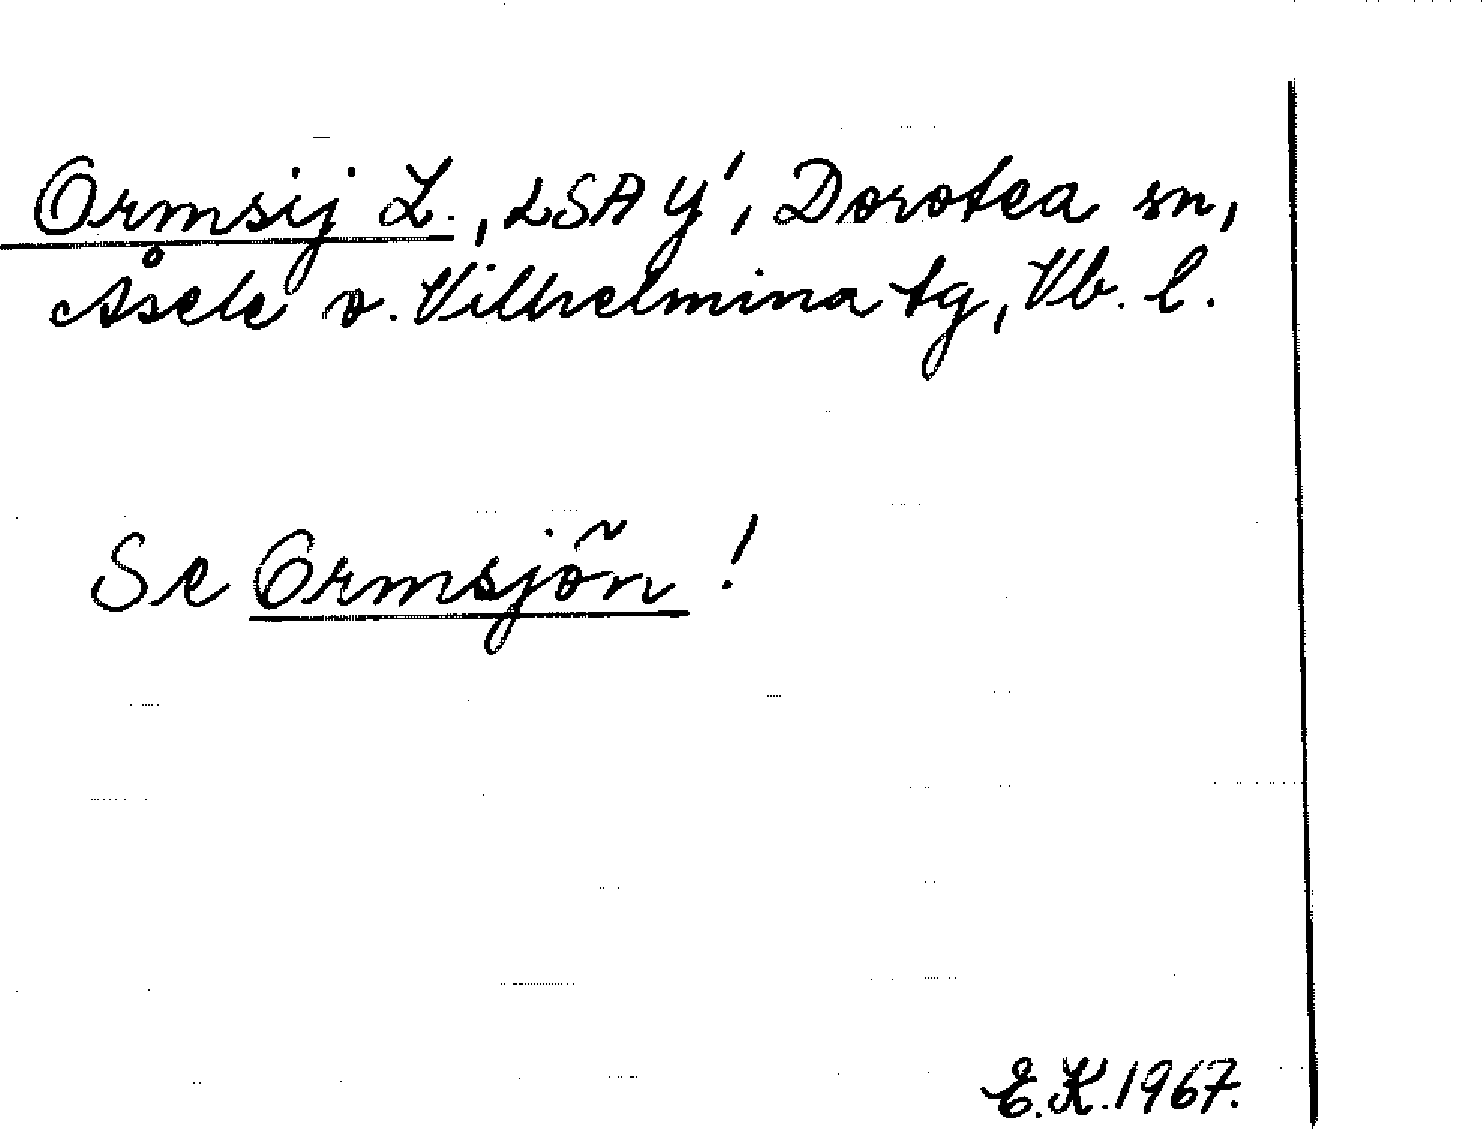 Ormsij L., LSA Y', Dorotea sn,
Åsele o. Vilhelmina tg, Vb. l.
Se Ormsjön !
E.K. 1967.